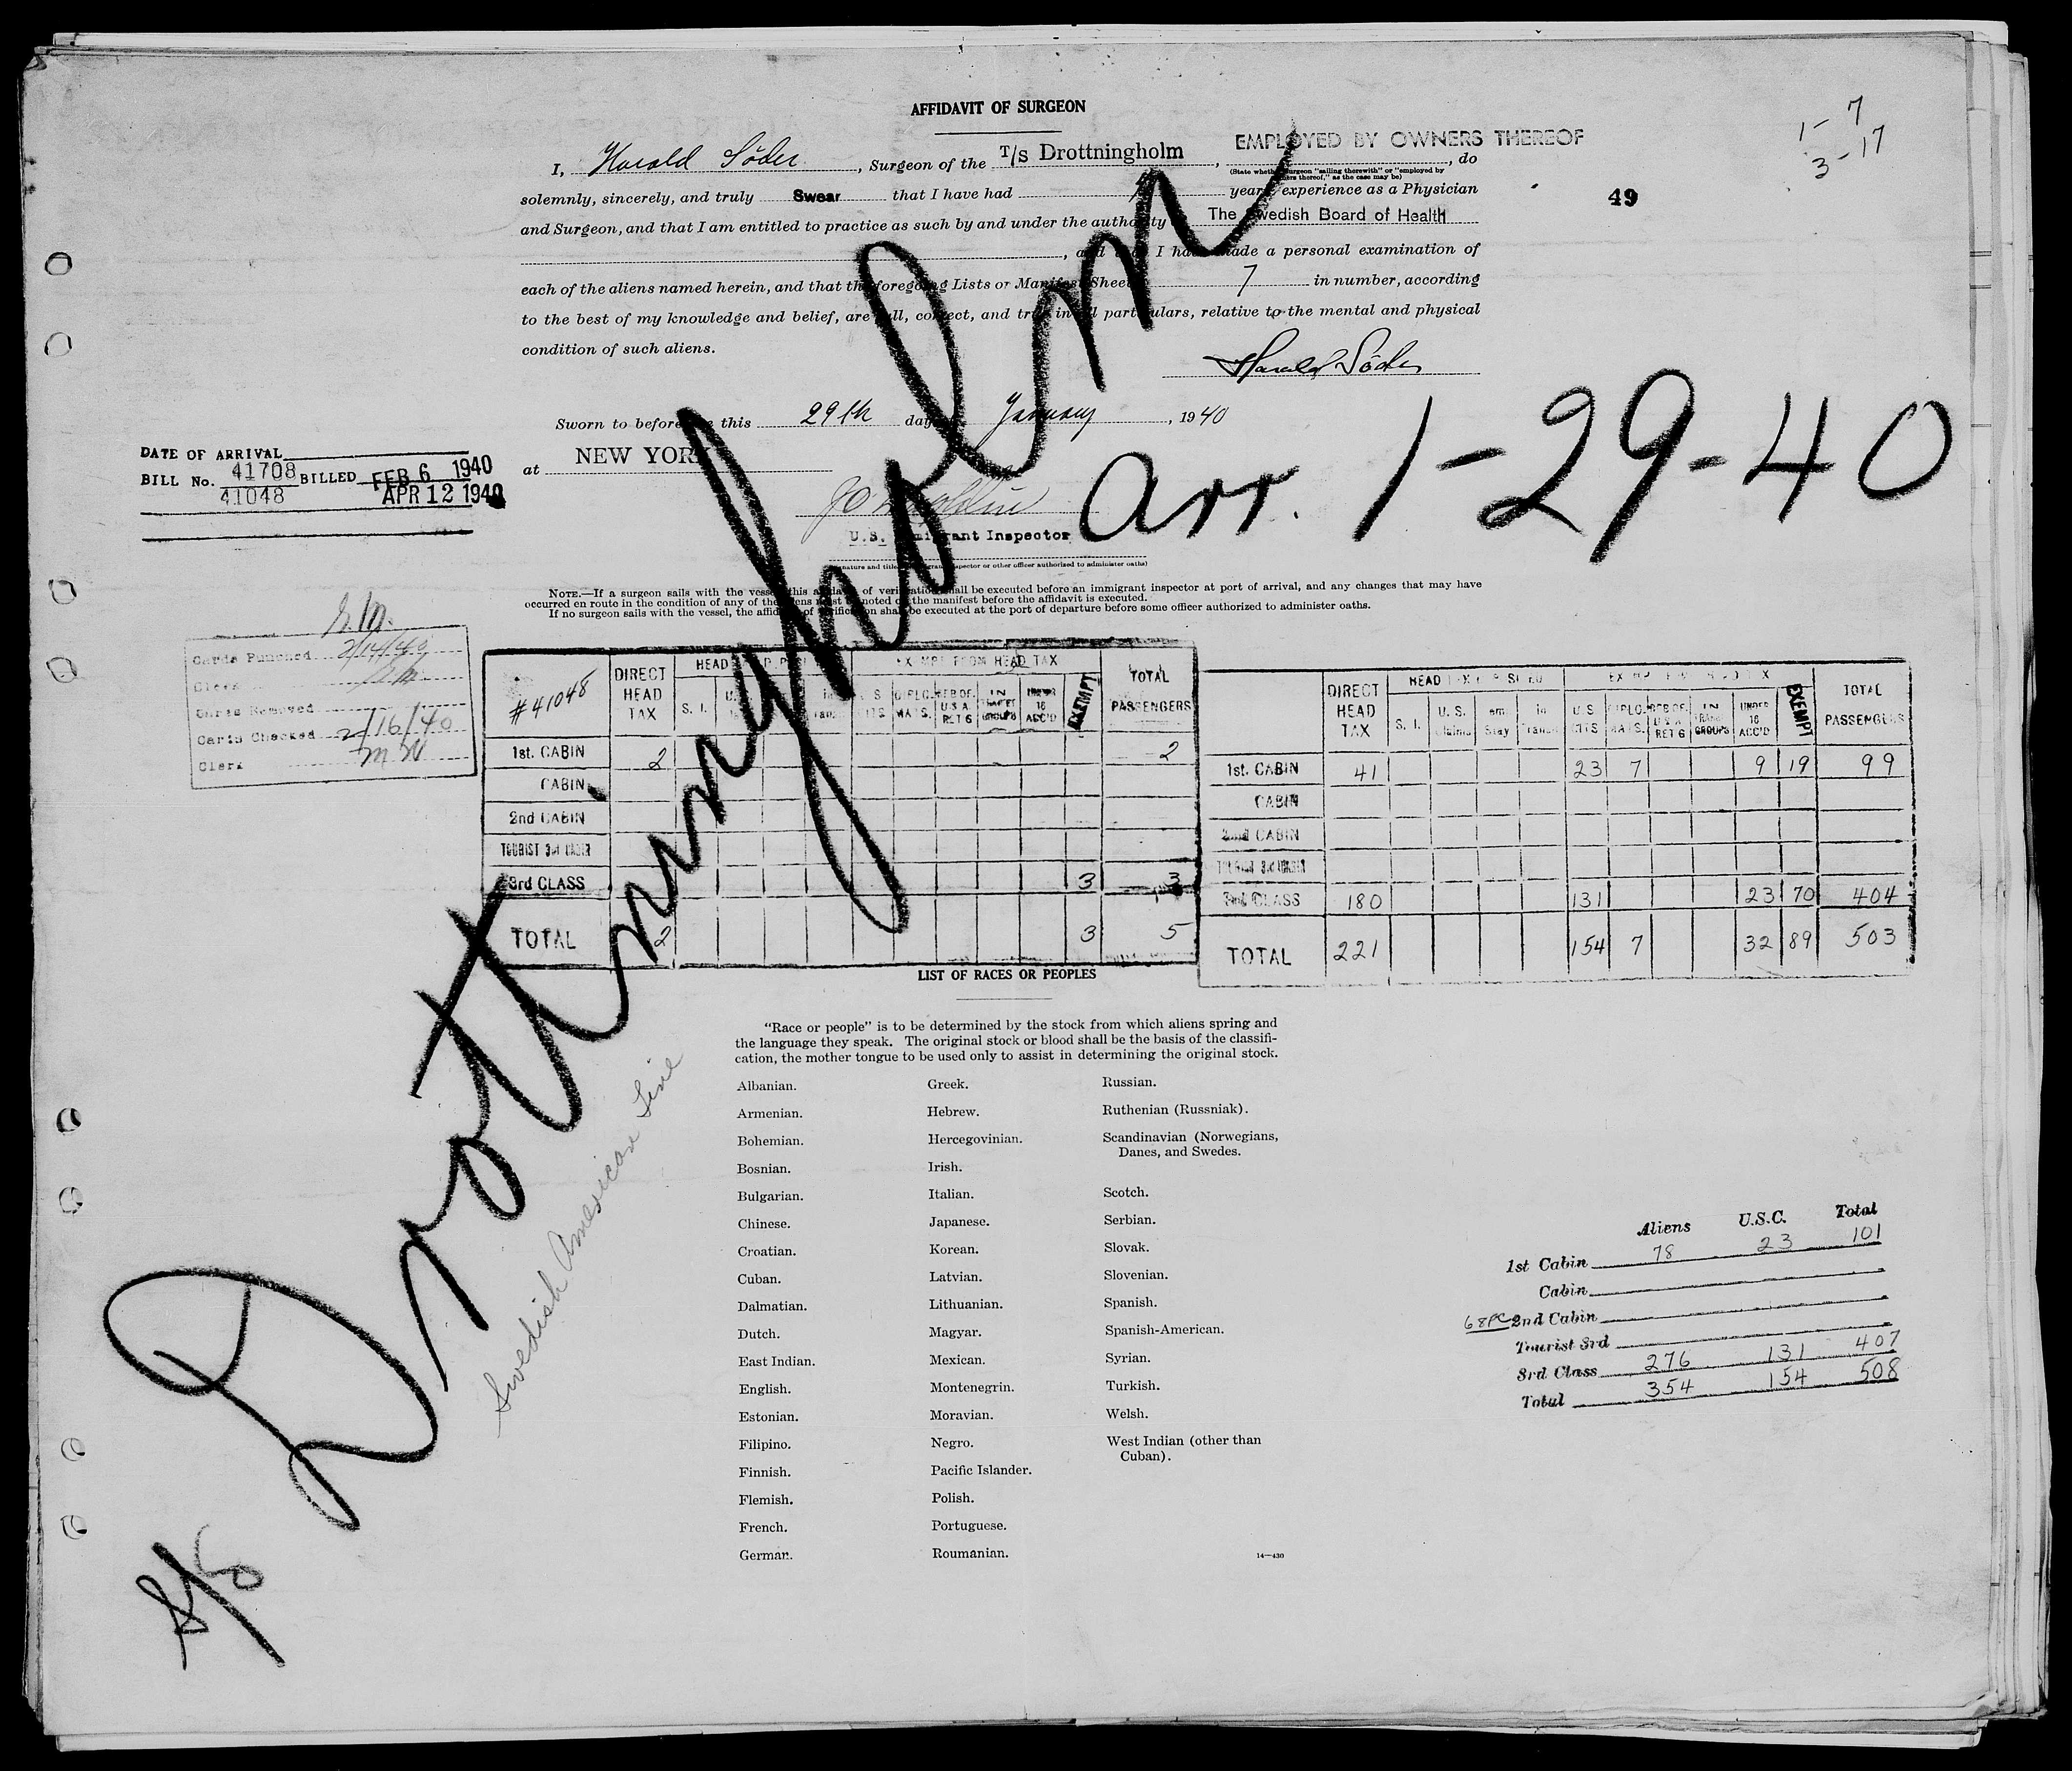 AFFIDAVIT OF SURGEON
1-7
3-17
EMPLOYED BY OWNERS THEREOF
I, Harold Söder, Surgeon of the T/S Drottningholm, do
(State whether surgeon "sailing therewith" or "employed by
owners thereof," as the case may be)
solemnly, sincerely, and truly Swear that I have had years' experience as a Physician
49
and Surgeon, and that I am entitled to practice as such by and under the authority The Swedish Board of Health
, and that I have made a personal examination of
each of the aliens named herein, and that the foregoing Lists or Manifest Sheets 7 in number, according
to the best of my knowledge and belief, are full, correct, and true in all particulars, relative to the mental and physical
condition of such aliens.
Harald Söder
Sworn to before me this 29th day January, 1940
at NEW YORK
U.S. Immigrant Inspector
(Signature and title immigrant inspector or other officer authorized to administer oaths)
arr. 1-29-40
DATE OF ARRIVAL
BILL No. 41708 BILLED FEB 6 1940
41048 APR 12 1940
NOTE.—If a surgeon sails with the vessel, this affidavit of verification shall be executed before an immigrant inspector at port of arrival, and any changes that may have
occurred en route in the condition of any of the aliens must be noted on the manifest before the affidavit is executed.
If no surgeon sails with the vessel, the affidavit of verification shall be executed at the port of departure before some officer authorized to administer oaths.
Cards Punched 2/14/40
Clerk
Cards Removed
Cards Checked 2/16/40
Clerk
#41048 DIRECT HEAD TAX S. I. EXEMPT FROM HEAD TAX EXEMPT TOTAL PASSENGERS
1st. CABIN 2 2
CABIN
2nd CABIN
TOURIST 3rd CABIN
3rd CLASS 3 3
TOTAL 2 3 5
DIRECT HEAD TAX S. I. U. S. Claims Tem Stay in Transit U S CITS DIPLOMATS. REB OF. U S A RET'G IN TRANS GROUPS UNDER 16 ACC'D EXEMPT TOTAL PASSENGERS
1st. CABIN 41 23 7 9 19 99
CABIN
2nd CABIN
TOURIST 3rd CABIN
3rd CLASS 180 131 23 70 404
TOTAL 221 154 7 32 89 503
Drottningholm
Swedish American Line
LIST OF RACES OR PEOPLES
"Race or people" is to be determined by the stock from which aliens spring and
the language they speak. The original stock or blood shall be the basis of the classifi-
cation, the mother tongue to be used only to assist in determining the original stock.
Albanian.
Armenian.
Bohemian.
Bosnian.
Bulgarian.
Chinese.
Croatian.
Cuban.
Dalmatian.
Dutch.
East Indian.
English.
Estonian.
Filipino.
Finnish.
Flemish.
French.
German.
Greek.
Hebrew.
Hercegovinian.
Irish.
Italian.
Japanese.
Korean.
Latvian.
Lithuanian.
Magyar.
Mexican.
Montenegrin.
Moravian.
Negro.
Pacific Islander.
Polish.
Portuguese.
Roumanian.
Russian.
Ruthenian (Russniak).
Scandinavian (Norwegians,
Danes, and Swedes.
Scotch.
Serbian.
Slovak.
Slovenian.
Spanish.
Spanish-American.
Syrian.
Turkish.
Welsh.
West Indian (other than
Cuban).
14—430
Aliens U.S.C. Total
1st Cabin 78 23 101
Cabin
2nd Cabin
Tourist 3rd
3rd Class 276 131 407
Total 354 154 508